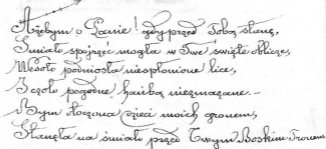 Ażebym o Panie! gdy przed Tobą stanę,
Śmiało spojrzeć mogła w Twe święte oblicze,
Wesoło podniosła niespłonione lice,
I czoło pogodne hańbą niezmazane –
Bym otoczona dzieci moich gronem,
Stanęła na śmiało przed Twym Boskim Tronem